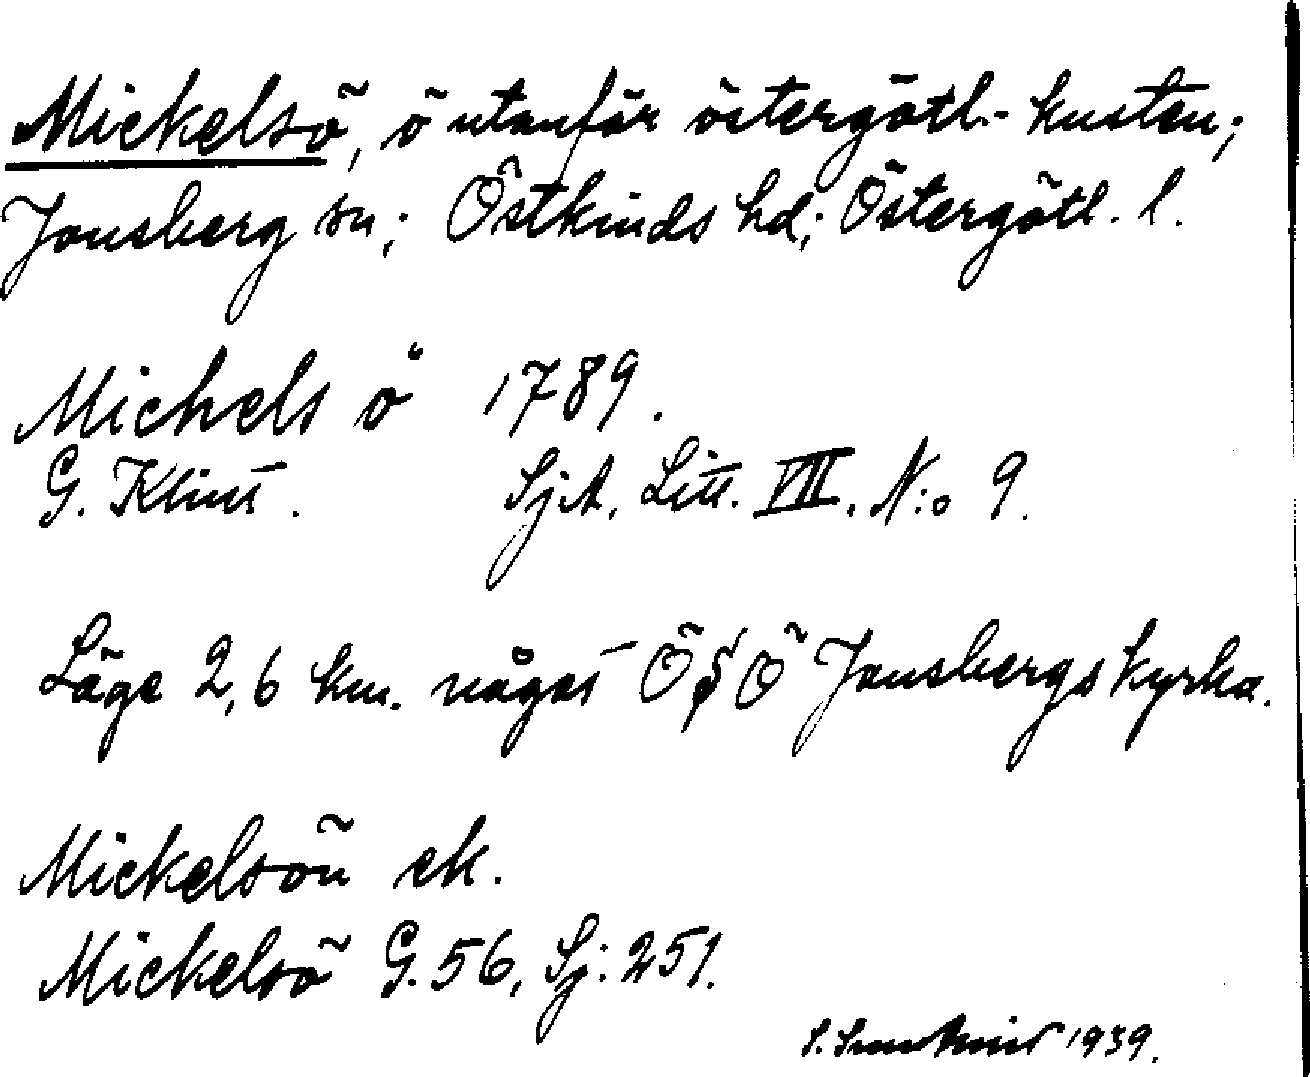 Mickelsö, ö utanför östergötl.-kusten;
Jonsberg sn; Östkinds hd; Östergötl. l.
Michels ö 1789.
G. Klint. SjA. Litt. VIII. N:o 9.
Läge 2,6 km. något ÖSÖ Jonsbergs kyrka.
Mickelsön ek.
Mickelsö G. 56, Sj: 251.
S. 1939.